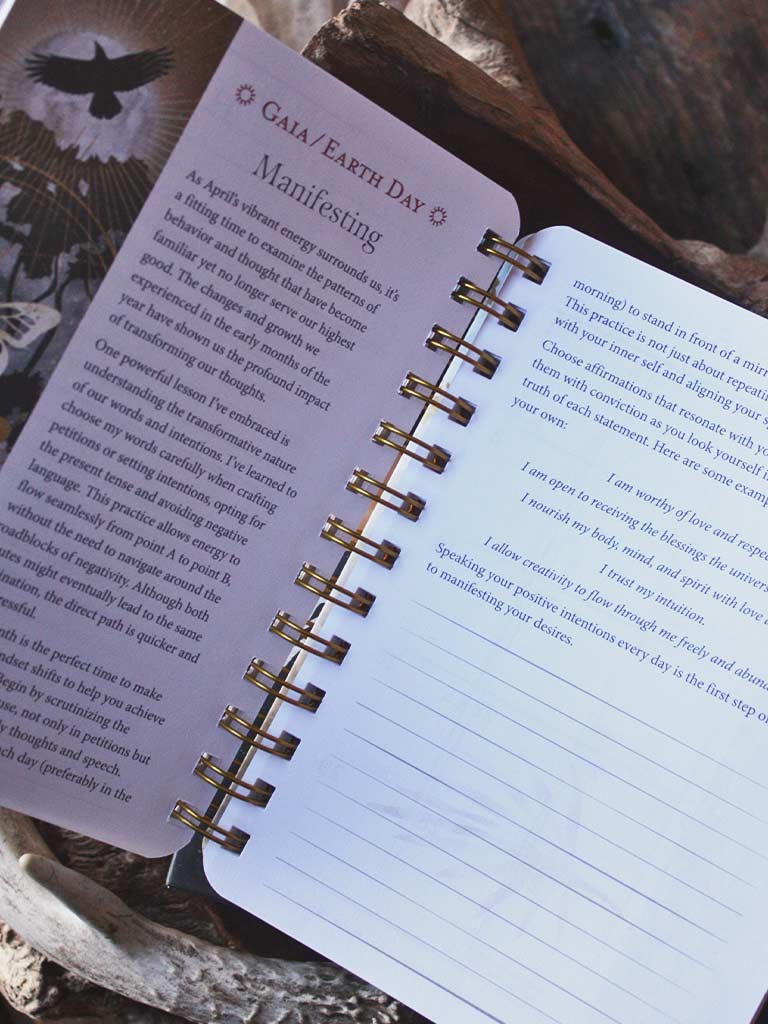 GAIA / EARTH DAY
Manifesting
As April's vibrant energy surrounds us, it's
a fitting time to examine the patterns of
behavior and thought that have become
familiar yet no longer serve our highest
good. The changes and growth we
experienced in the early months of the
year have shown us the profound impact
of transforming our thoughts.
One powerful lesson I've embraced is
understanding the transformative nature
of our words and intentions. I've learned to
choose my words carefully when crafting
petitions or setting intentions, opting for
the present tense and avoiding negative
language. This practice allows energy to
flow seamlessly from point A to point B,
without the need to navigate around the
roadblocks of negativity. Although both
might eventually lead to the same
the direct path is quicker and
is the perfect time to make
shifts to help you achieve
Begin by scrutinizing the
not only in petitions but
thoughts and speech.
day (preferably in the
morning) to stand in front of a
This practice is not just about
with your inner self and aligning your
Choose affirmations that resonate with
them with conviction as you look yourself
truth of each statement. Here are some
your own:
I am worthy of love and
I am open to receiving the blessings the
I nourish my body, mind, and spirit with love
I trust my intuition.
I allow creativity to flow through me freely and
Speaking your positive intentions every day is the first step
to manifesting your desires.